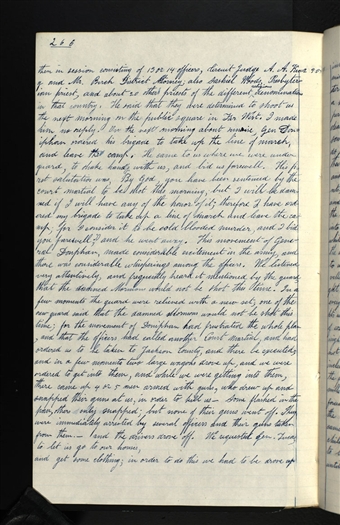 266
then in session consisting of 13 or 14 officers, Circuit Judge A. A. King
and Mr. Birch District Attorney; also Sashiel Woods, Presbyter-
ian priest, and about 20 other priests of the different denominations
in that country. He said that they were determined to shoot us
the next morning on the public square in Far West. I made
him no reply. On the next morning about sunrise Gen. Don-
iphan ordered his brigade to take up the line of march,
and leave the camp. He came to us where we were under
guard, to shake hands with us, and bid us farewell. His fi-
rst salutation was, By God you have been sentenced by the
court martial to be shot this morning; but I will be damn-
ed if I will have any of the honor of it; therefore I have ord-
ered my brigade to take up a line of march and leave the ca-
mp, for I consider it to be cold blooded murder, and I bid
you farewell; and he went away. This movement of Gene-
ral Doniphan, made considerable excitement in the army, and
there was considerable whisperings among the officers. We listened
very attentively, and frequently heard it mentioned by the guard
that the damned Mormons would not be shot this time. In a
few moments the guard were relieved with a new set; one of the
new guard said that the damned Mormons would not be shot this
time; for the movement of Doniphan had frustrated the whole plan,
and that the officers had called another Court martial, and had
ordered us to be taken to Jackson County, and there be executed;
and in a few moments two large wagons drove up and we were
ordered to get into them, and while we were getting into them,
there came up 4 or 5 men armed with guns, who drew up and
snapped their guns at us, in order to kill us — Some flashed in the
pan, others only snapped; but none of their guns went off. They
were immediately arrested by several officers and their guns taken
from them — and the drivers drove off. We requested Gen. Lucas
to let us go to our homes,
and get some clothing; in order to do this we had to be drove up